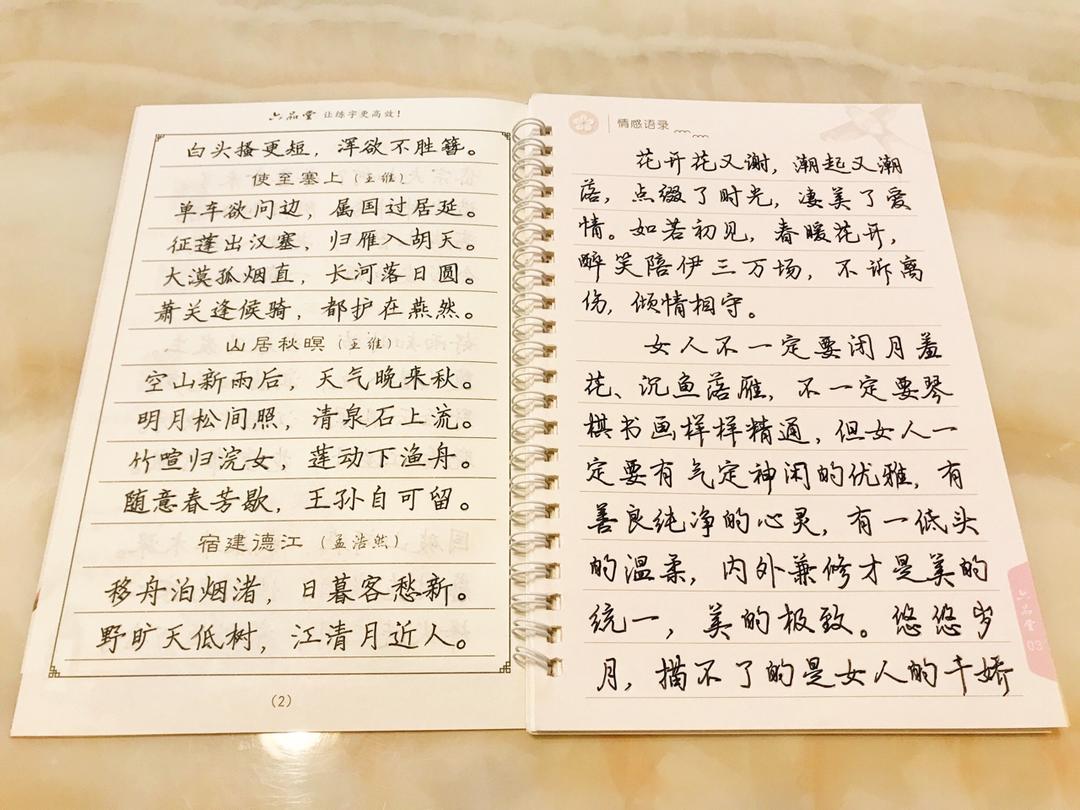 六品堂 让练字更高效！
白头搔更短，浑欲不胜簪。
使至塞上（王维）
单车欲问边，属国过居延。
征蓬出汉塞，归雁入胡天。
大漠孤烟直，长河落日圆。
萧关逢候骑，都护在燕然。
山居秋暝（王维）
空山新雨后，天气晚来秋。
明月松间照，清泉石上流。
竹喧归浣女，莲动下渔舟。
随意春芳歇，王孙自可留。
宿建德江（孟浩然）
移舟泊烟渚，日暮客愁新。
野旷天低树，江清月近人。
(2)
情感语录
花开花又谢，潮起又潮
落，点缀了时光，凄美了爱
情。如若初见，春暖花开，
醉笑陪伊三万场，不诉离
伤，倾情相守。
女人不一定要闭月羞
花、沉鱼落雁，不一定要琴
棋书画样样精通，但女人一
定要有气定神闲的优雅，有
善良纯净的心灵，有一低头
的温柔，内外兼修才是美的
统一，美的极致。悠悠岁
月，描不了的是女人的千娇
六品堂
03